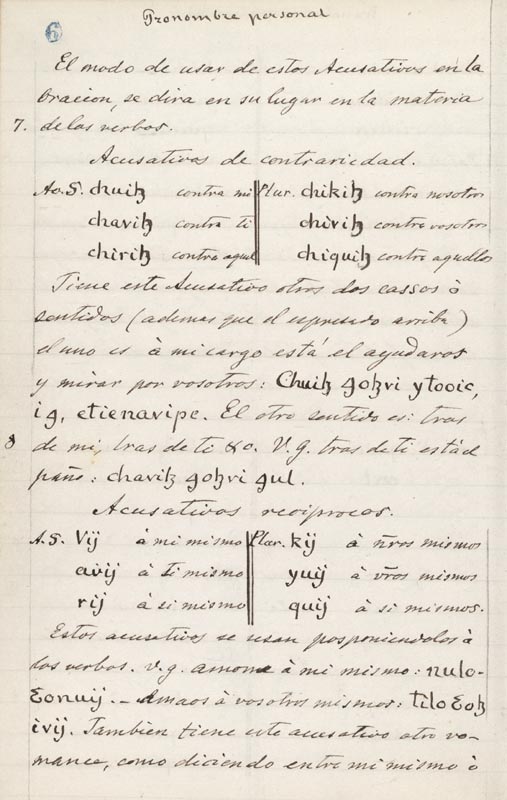 Pronombre personal
6
El modo de usar de estos Acusativos en la
Oracion, se dira en su lugar en la materia
7. de los verbos.
Acusativos de contrariedad.
Ao. S. chuiꜩ contra mi Plur. chikiꜩ contra nosotros
chaviꜩ contra ti chiviꜩ contra vosotros
chiriꜩ contra aquel chiquiꜩ contra aquellos
Tiene este Acusativo otros dos cassos ò
sentidos (ademas que el espresado arriba)
el uno es à mi cargo está el ayudaros
y mirar por vosotros: Chuiꜩ goꜩvi ytooic,
ig, etienavipe. El otro sentido es: tras
8 de mi, tras de ti &o. V.g. tras de ti está el
paño: chaviꜩ goꜩvi gul.
Acusativos reciprocos.
A. S. Vij à mi mismo Plur. kij à ños mismos
avij à ti mismo yuij à vr̃os mismos
rij à si mismo quij à si mismos.
Estos acusativos se usan posponiendolos à
los verbos. v.g. amome à mi mismo: nulo-
Ɛonuij. _ Amaos à vosotros mismos: tiloƐoꜩ
ivij. Tambien tiene este acusativo otro ro-
mance, como diciendo entre mi mismo ò